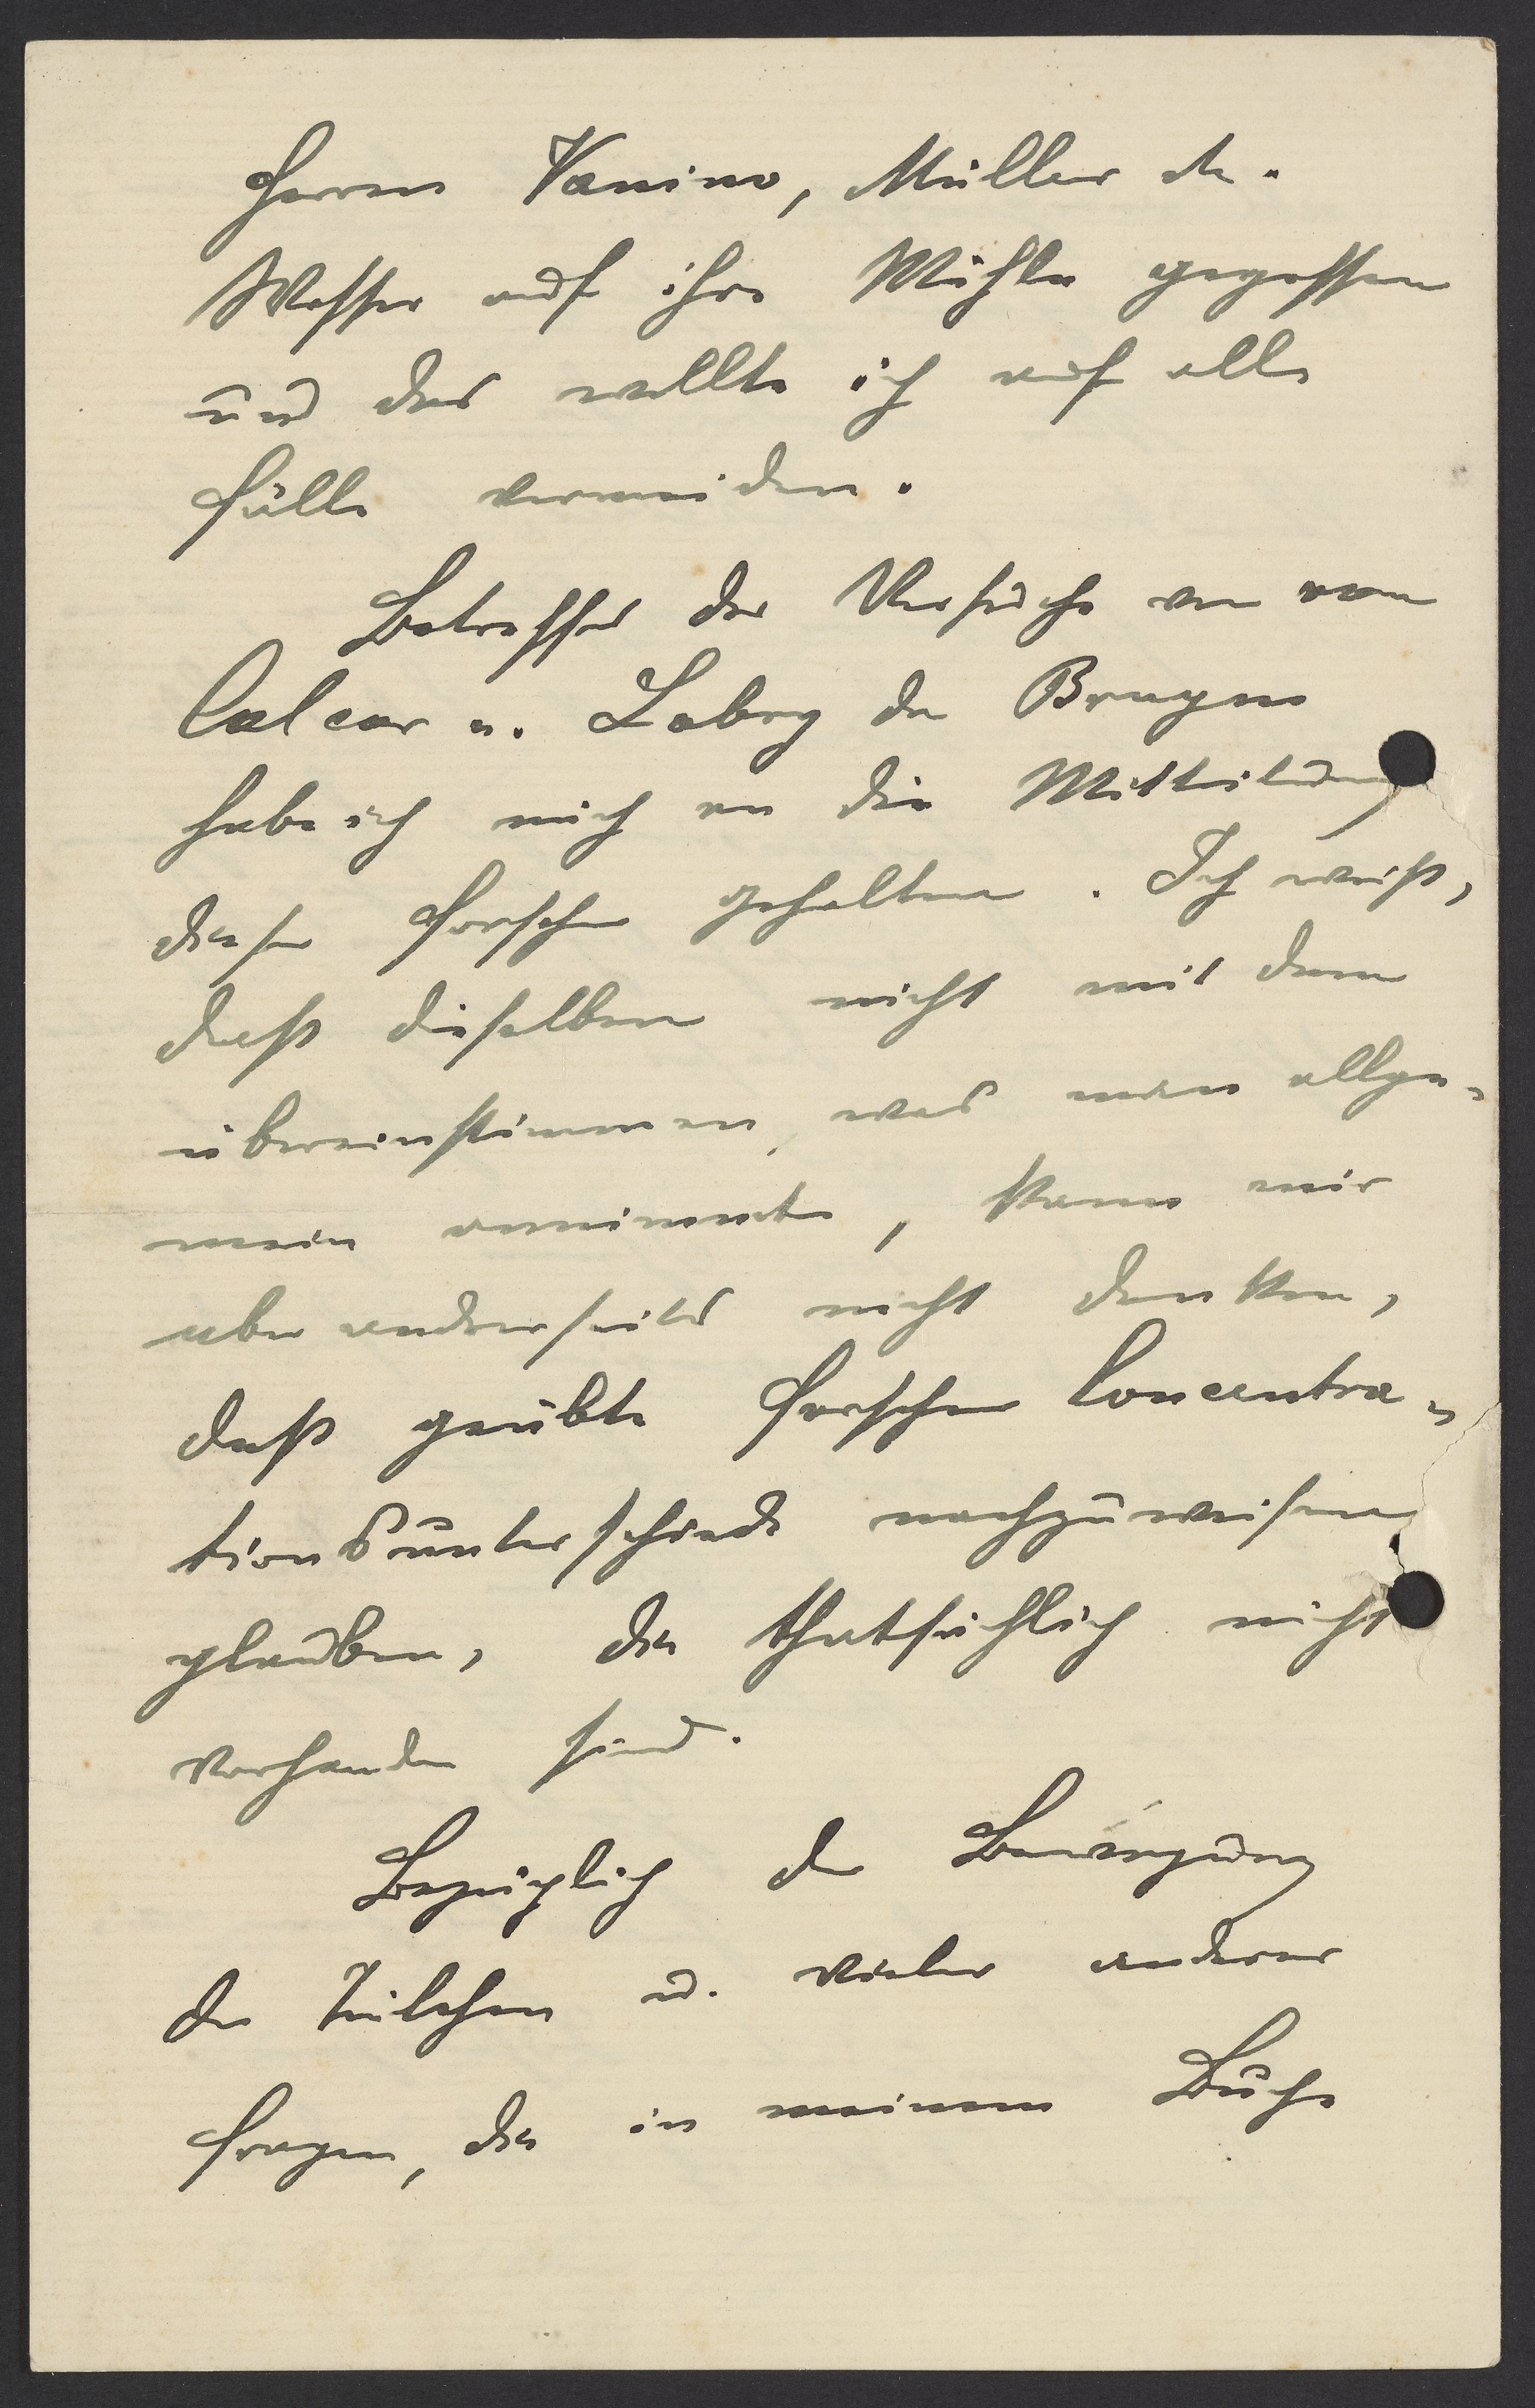 Herren Vanino, Müller etc.
Wasser auf ihre Mühle gegossen
und das wollte ich auf alle
Fälle vermeiden.
Betreffs der Versuche von van
Calcar u. Lobry de Bruyn
habe ich mich an die Mitteilung
dieser Forscher gehalten. Ich weiß,
daß dieselben nicht mit dem
übereinstimmen, was man allge-
mein annimmt, kann mir
aber anderseits nicht denken,
daß geübte Forscher Concentra-
tionsunterschiede nachzuweisen
glauben, die thatsächlich nicht
vorhanden sind.
Bezüglich der Bewegung
der Teilchen u. vieler anderer
Fragen, die in meinem Buche